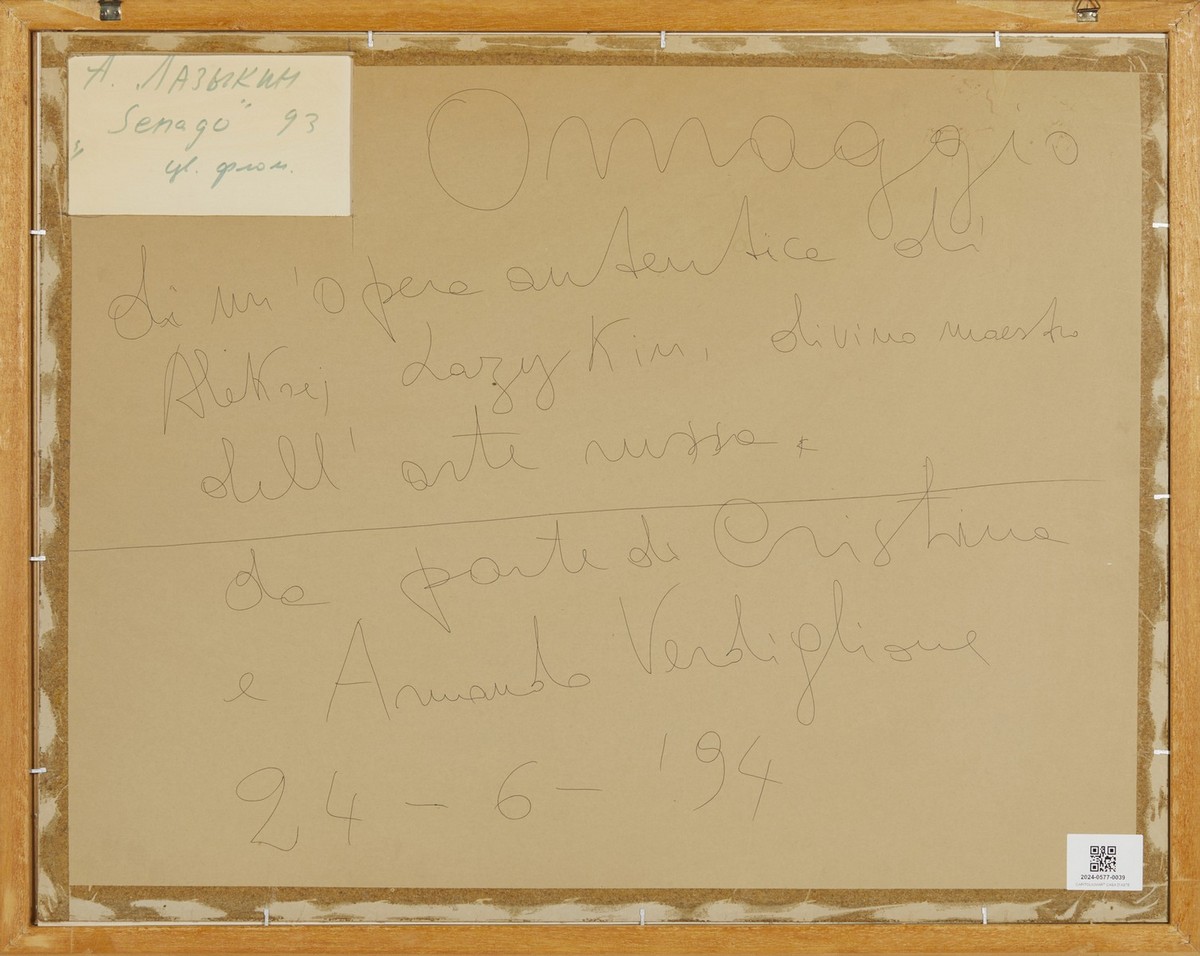 А. ЛАЗЫКИН
"Senago" 93
цв. флом.
Omaggio
di un'opera autentica di
Aleksej Lazykin, divino maestro
dell'arte russa.
da parte di Cristina
e Armando Verdiglione
24-6-'94
2024-0577-0039